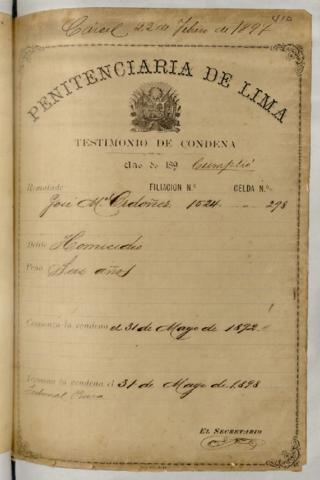 Cárcel 22 de Febrero de 1897
410
PENITENCIARIA DE LIMA
TESTIMONIO DE CONDENA
Año de 189 Cumplió
Rematado FILIACIÓN N.º CELDA N.º
José Mª Ordoñes 1024 298
Delito Homicidio
Pena Seis años
Comienza la condena el 31 de Mayo de 1892
Termina la condena el 31 de Mayo de 1898
Tribunal Piura
EL SECRETARIO